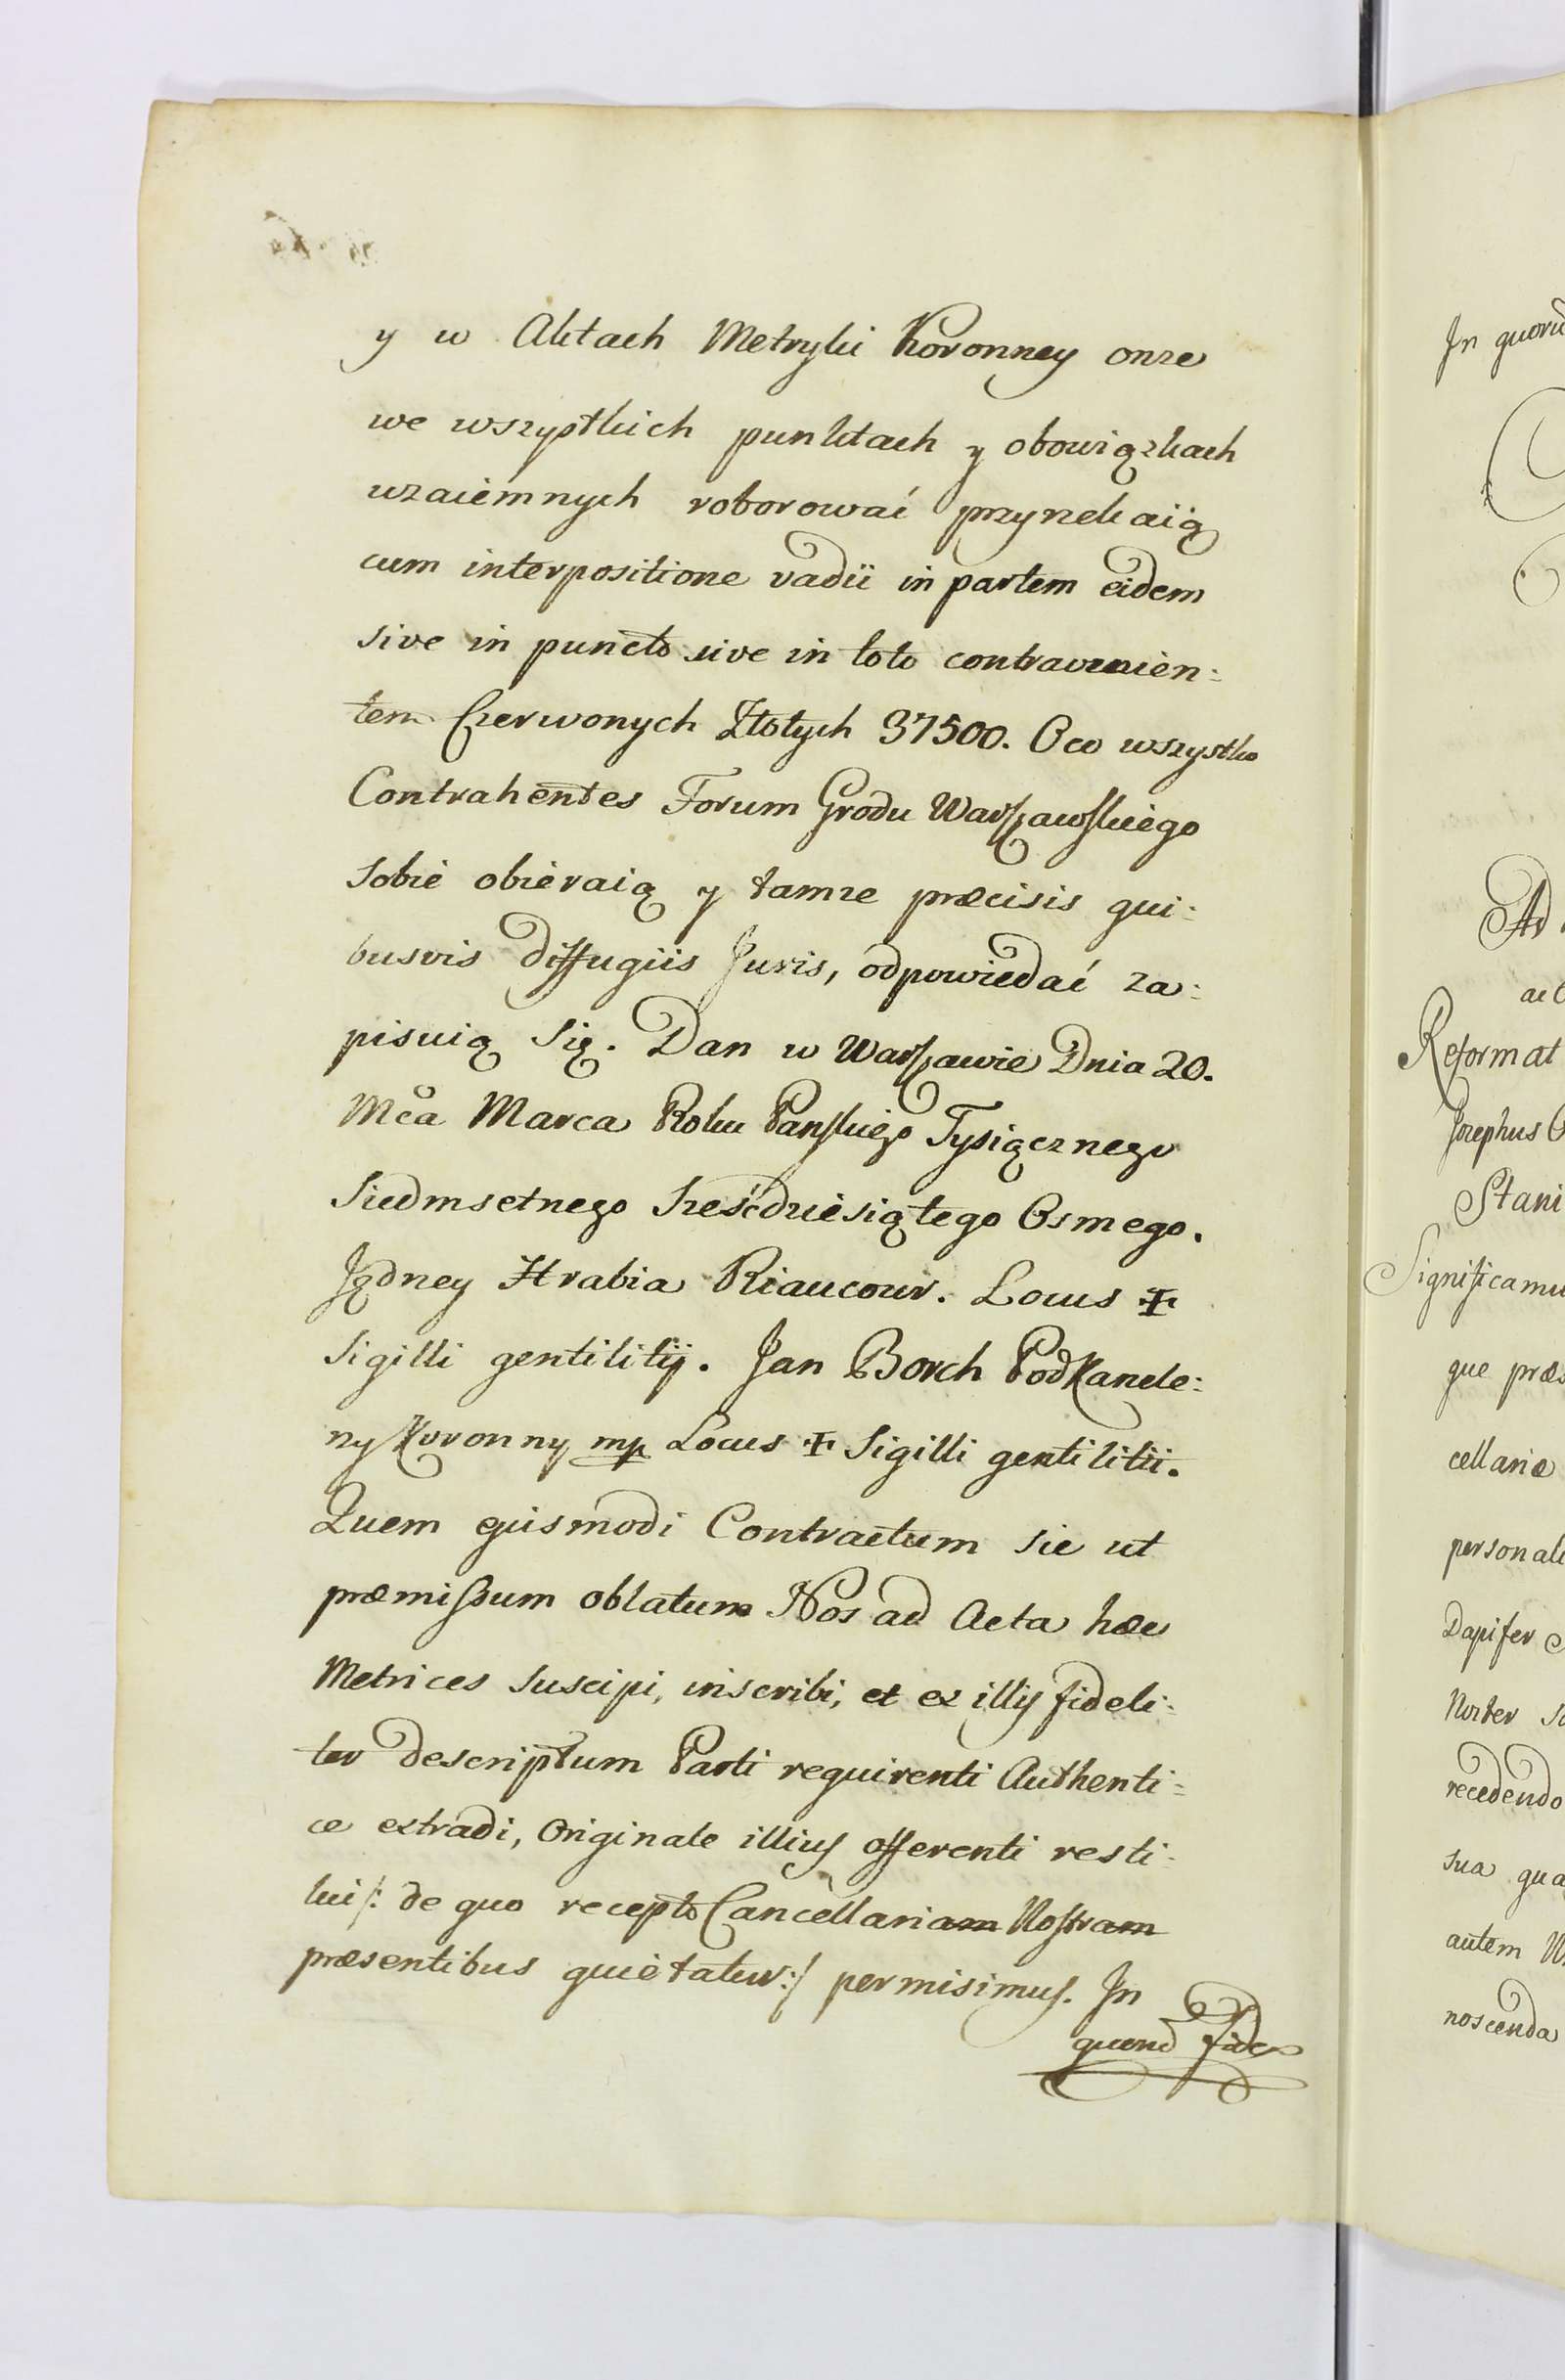 y w Aktach Metryki Koronney onże
we wszystkich punktach y obowiązkach
wzaiemnych roborować przyrzekaią
cum interpositione vadii in partem eidem
sive in puncto sive in toto contravenien:
tem Czerwonych Złotych 37500. O co wszystko
Contrahentes Forum Grodu Warszawskiego
sobie obieraią y tamże præcisis qui:
busvis diffugiis Juris, odpowiedać za:
pisuią się. Dan w Warszawie Dnia 20.
Mca Marca Roku Panskiego Tysiącznego
Siedmsetnego Sześćdziesiątego Osmego.
Hrabia Riaucour. Locus ✠
Sigilli gentilitij. Jan Borch PodKancle:
rzy Koronny mp Locus ✠ Sigilli gentilitii.
Quem ejusmodi Contractum sic ut
præmissum oblatum Nos ad Acta hæc
Metrices suscipi, inscribi, et ex illis fideli:
ter descriptum Parti requirenti Authenti:
ce extradi, Originale illius offerenti resti:
tui /: de quo recepto Cancellariam Nostram
præsentibus quietatur :/ permisimus. In
quorū fidē
In quorū
Ad
act
Reformat
Josephus
Stani
Significamu
que præs
cellariæ
personali
Dapifer
Noster
recedendo
sua qua
autem
noscenda